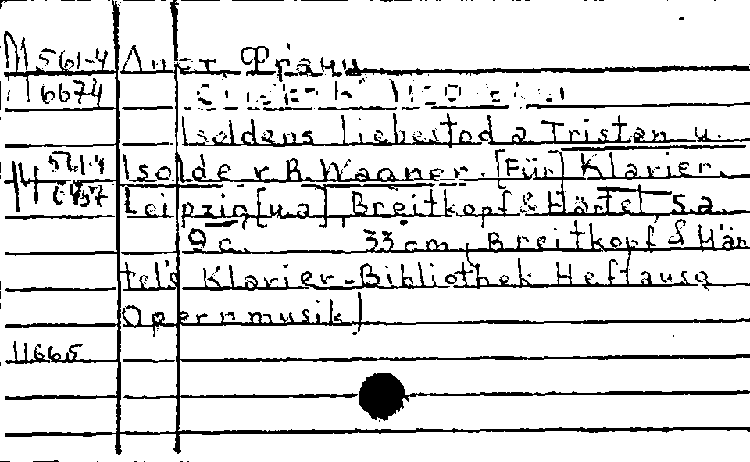 М 561-4 Лист, Франц.
6674
Isoldens Liebestod a. Tristan u.
Isolde v. R. Wagner. [Für] Klavier.
561-4
Leipzig [u.a], Breitkopf & Härtel, s.a.
9 с. 33 cm, (Breitkopf & Här
tel's Klavier-Bibliothek Heftausg
Opernmusik)
11665